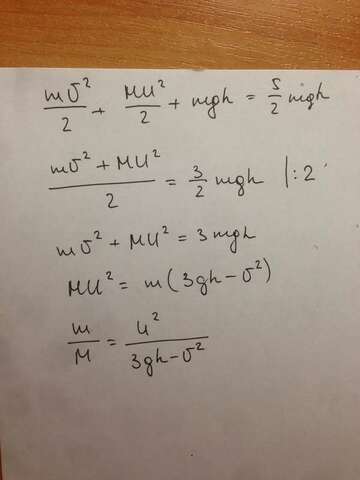 mv²/2 + Mu²/2 + mgh = 5/2 mgh
(mv² + Mu²)/2 = 3/2 mgh |:2
mv² + Mu² = 3mgh
Mu² = m(3gh - v²)
m/M = u²/(3gh - v²)